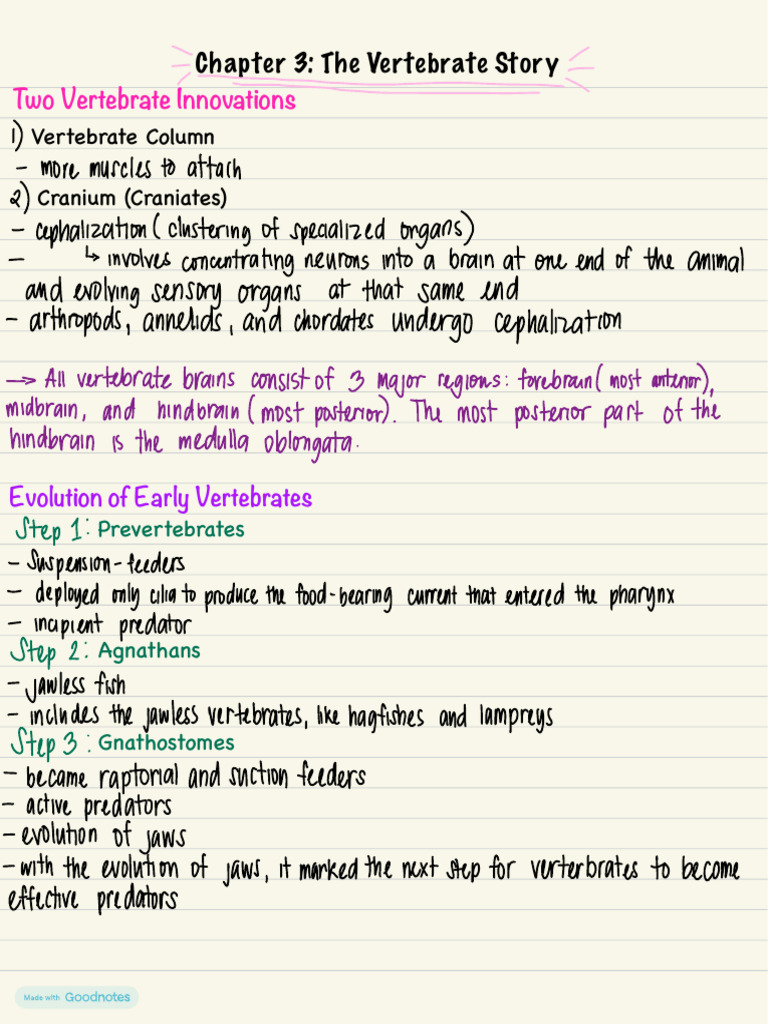 Chapter 3: The Vertebrate Story
Two Vertebrate Innovations
1) Vertebrate Column
- more muscles to attach
2) Cranium (Craniates)
- cephalization (clustering of specialized organs)
- ↳ involves concentrating neurons into a brain at one end of the animal
and evolving sensory organs at that same end
- arthropods, annelids, and chordates undergo cephalization
→ All vertebrate brains consist of 3 major regions: forebrain (most anterior),
midbrain, and hindbrain (most posterior). The most posterior part of the
hindbrain is the medulla oblongata.
Evolution of Early Vertebrates
Step 1: Prevertebrates
- Suspension-feeders
- deployed only cilia to produce the food-bearing current that entered the pharynx
- incipient predator
Step 2: Agnathans
- jawless fish
- includes the jawless vertebrates, like hagfishes and lampreys
Step 3: Gnathostomes
- became raptorial and suction feeders
- active predators
- evolution of jaws
- with the evolution of jaws, it marked the next step for verterbrates to become
effective predators
Made with Goodnotes